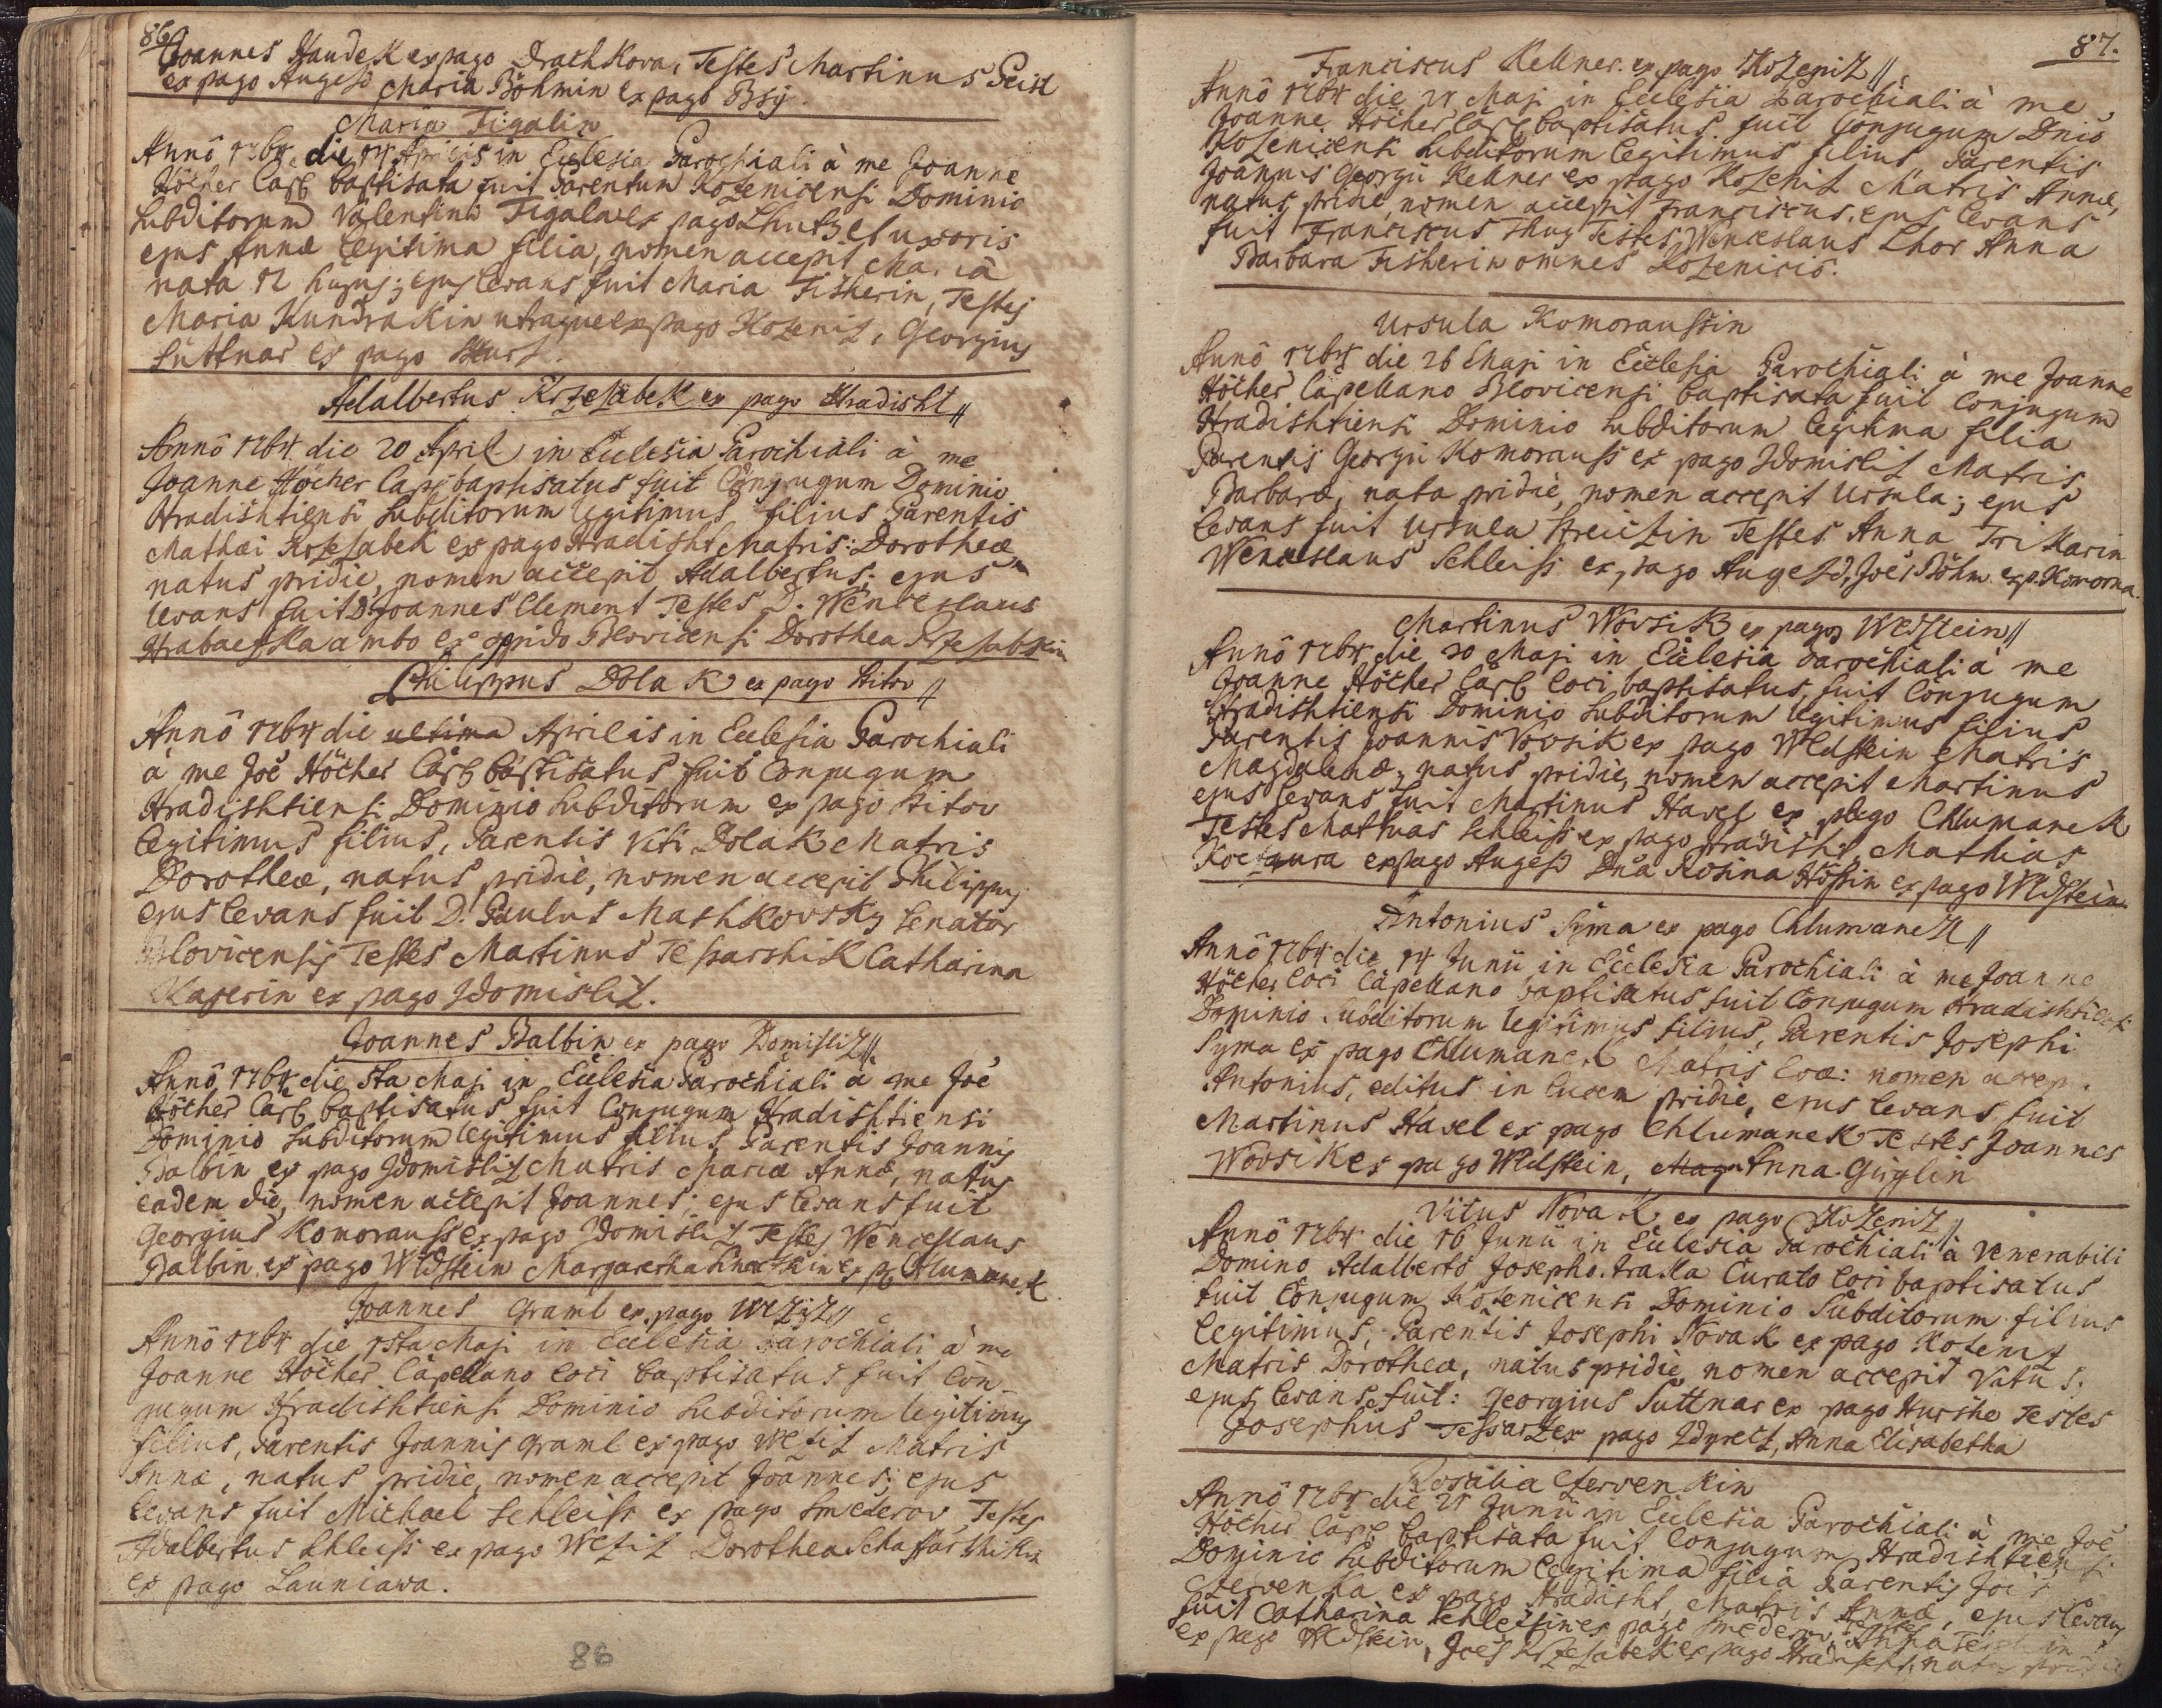 86
Joannes Haudek ex pago Drachkova, Testes Martinus Geisl
ex pago Augesd Maria Böhmin ex pago Bsy.
Maria Figalin
Annô 1764 die 14 Aprilis in Ecclesia Parochiali à me Joanne
Höcher Cap baptisata fuit Parentum Kozenicensi Dominio
Subditorum Valentini Figala ex pago Lhutz et uxoris
ejus Annæ legitima filia, nomen accepit Maria
nata 12 hujus; ejus levans fuit Maria Fisherin, Testes
Maria Kundrakin utraque ex pago Kozeniz, Georgius
Suttnar ex pago
Adalbertus Krzesabek ex pago Hradisht //
Annô 1764 die 20 April in Ecclesia Parochiali à me
Joanne Höcher Cap baptisatus fuit Conjugum Dominio
Hradishtiensi Subditorum legitimus filius Parentis
Mathæi Krzesabek ex pago Hradisht Matris: Dorotheæ
natus pridie, nomen accepit Adalbertus; ejus
levans fuit D. Joannes Clement Testes D. Wenceslaus
ambo ex oppido Blovicensi Dorothea
Philippus Dolak ex pago Stitov //
Annô 1764 die ultima Aprilis in Ecclesia Parochiali
à me Joê Höcher Cap baptisatus fuit Conjugum
Hradishtiensi Dominio Subditorum ex pago Stitov
legitimus filius, Parentis Viti Dolak Matris
Dorotheæ, natus pridie, nomen accepit Philippus
ejus levans fuit D. Paulus Mashkovsky Senator
Blovicensis Testes Martinus Tesparshik Catharina
Kaperin ex pago Zdomisliz.
Joannes Balbin ex pago Zdomisliz //
Annô 1764 die 1sta Maji in Ecclesia Parochiali à me Joê
Höcher Cap baptisatus fuit Conjugum Hradishtiensi
Dominio Subditorum legitimus filius Parentis Joannis
Balbin ex pago Zdomisliz Matris Mariæ Annæ, natus
eadem die, nomen accepit Joannes; ejus levans fuit
Georgius Komorauss ex pago Zdomisliz Testes Wenceslaus
Balbin ex pago Wldstein Margaretha ex p. Chlumanek
Joannes Graml ex pago Weziz //
Annô 1764 die 1sta Maji in Ecclesia Parochiali à me
Joanne Höcher Capellano loci baptisatus fuit Con-
jugum Hradishtiensi Dominio Subditorum legitimus
filius, Parentis Joannis Graml ex pago Weziz Matris
Annæ, natus pridie, nomen accepit Joannes; ejus
levans fuit Michael Schleiss ex pago Smederov Testes
Adalbertus Shleiss ex pago Weziz Dorothea
ex pago Launiawa.
86
87.
Franciscus Kellner ex pago Kozeniz //
Annô 1764 die 21 Maji in Ecclesia Parochiali à me
Joanne Höcher Cap baptisatus fuit Conjugum Dnio
Kozenicensi Subditorum legitimus filius Parentis
Joannis Georgii Kellner ex pago Kozeniz Matris Annæ,
natus pridie, nomen accepit Franciscus, ejus levans
fuit Franciscus Testes Wenceslaus Chor Anna
Barbara Fisherin omnes Kozenicis.
Ursula Komoraussin
Annô 1764 die 26 Maji in Ecclesia Parochiali à me Joanne
Höcher Capellano Blovicensi baptisata fuit Conjugum
Hradishtiensi Dominio Subditorum legitima filia
Parentis Georgii Komorauss ex pago Zdomisliz Matris
Barbaræ, nata pridie, nomen accepit Ursula; ejus
levans fuit Ursula Streiczin Testes Anna Trikarin
Wenceslaus Schleiss ex pago Augezd, Joês Böhm ex p. Komorna.
Martinus Wovsik ex pago Wldstein //
Annô 1764 die 30 Maji in Ecclesia Parochiali à me
Joanne Höcher Cap loci baptisatus, fuit Conjugum
Hradishtiensi Dominio Subditorum legitimus filius
Parentis Joannis Wovsik ex pago Wldstein Matris
Magdalenæ, natus pridie, nomen accepit Martinus
ejus levans fuit Martinus Havel ex pago Chlumanek
Testes Matthias Schleiss ex pago Hradisht, Mathias
ex pago Augesd Dna Rosina Hössin ex pago Wldstein.
Antonius Syma ex pago Chlumanek //
Annô 1764 die 14 Junii in Ecclesia Parochiali à me Joanne
Höcher loci Capellano baptisatus fuit Conjugum Hradishtiensi
Dominio Subditorum legitimus filius, Parentis Josephi
Syma ex pago Chlumanek Matris Evæ: nomen accep.
Antonius, editus in lucem pridie, ejus levans fuit
Martinus Havel ex pago Chlumanek Testes Joannes
Wovsik ex pago Wldstein, Anna Guglin
Vitus Novak ex pago Kozeniz //
Annô 1764 die 16 Junii in Ecclesia Parochiali à Venerabili
Domino Adalberto Josepho Curato loci baptisatus
fuit Conjugum Kozenicensi Dominio Subditorum filius
legitimus, Parentis Josephi Novak ex pago Kozeniz
Matris Dorotheæ, natus pridie nomen accepit Vitus;
ejus levans fuit: Georgius Suttnar ex pago Hurshe Testes
Josephus Tessarz ex pago Zdyrecz, Anna Elisabetha
Rosalia Czervenkin
Annô 1764 die 21 Junii in Ecclesia Parochiali à me Joê
Höcher Cap baptisata fuit Conjugum Hradishtiensi
Dominio Subditorum legitima filia Parentis Jois
Czervenka ex pago Hradisht, Matris Annæ, ejus levans
fuit Catharina Schleissin ex pago Smederov, Testes Anna
ex pago Wldstein, Joês Krzesabek ex pago Hradisht, nata pridie